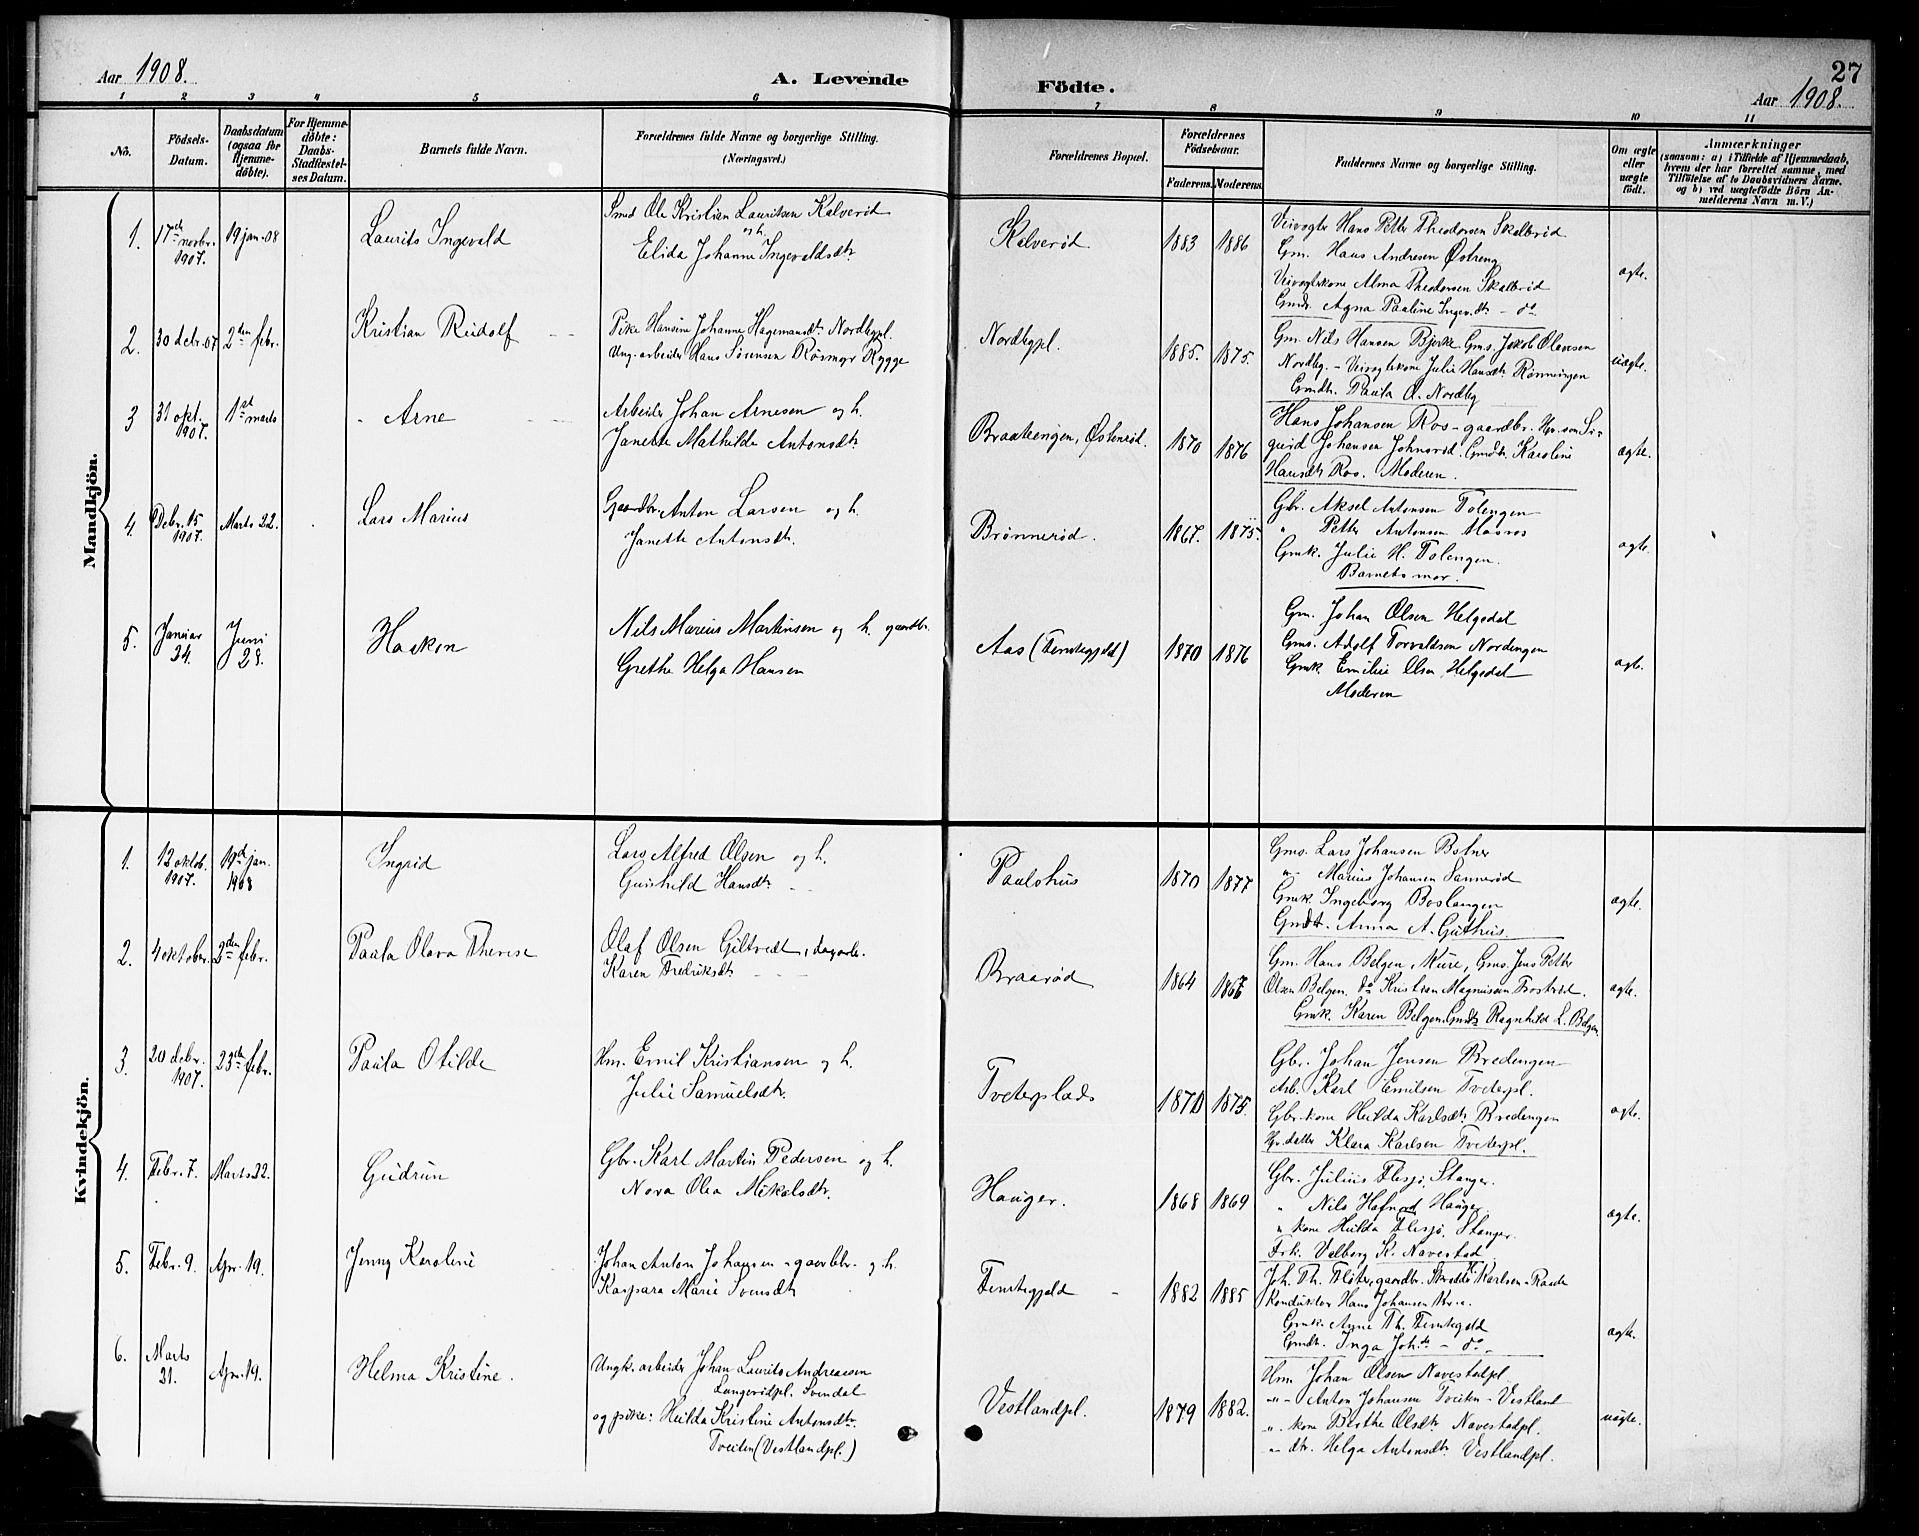 Aar 1908.
A. Levende
Födte.
27
Aar 1908.
1 2 3 4 5 6 7 8 9 10 11
No.
Födsels-Datum.
Daabsdatum (ogsaa for Hjemme-döbte).
For Hjemme-döbte: Daabs-Stadfæstel-ses Datum.
Barnets fulde Navn.
Forældrenes fulde Navne og borgerlige Stilling. (Næringsvei.)
Forældrenes Bopæl.
Forældrenes Födselsaar.
Faderens. Moderens.
Faddernes Navne og borgerlige Stilling.
Om ægte eller uægte födt.
Anmærkninger
(saasom: a) i Tilfælde af Hjemmedaab, hvem der har forrettet samme, med Tilföielse af to Daabsvidners Navne, og b) ved uægtefödte Börn An-melderens Navn m. V.)
Mandkjön.
1. 17de novbr. 1907. 19 jan. 08 Laurits Ingevald
Smed Ole Kristian Lauritsen Kalveröd
og h.
Elida Johanne Ingevaldsdtr.
Kalveröd. 1883 1886
Veivogter Hans Petter Theodorsen Skalleröd
Gm. Hans Andresen Østreng
Veivogterkone Alma Theodorsen Skalleröd
Gmdr. Agna Pauline Ingevdtr - do
ægte.
2. 30 debr. 07 2den febr. Kristian Rudolf
Pike Hansine Johanne Hagemansdtr. Nordbypl.
Ung. arbeider Hans Sörensen Rösmyr Rygge
Nordbypl. 1885. 1875.
Gm. Nils Hansen Bjerke. Gms. Jakob Olavesen
Nordby. - Veivogterkone Julie Hansdtr. Rönningen
Gmdtr. Paula O. Nordby
uægte.
3 31 okt. 1907. 1st marts Arne
Arbeider Johan Arnesen og h.
Janette Mathilde Antonsdtr.
Braatengen, Östenröd. 1870 1876
Hans Johansen Ros - gaardbr. Hr. sön Si-
gurd Johansen Johnsröd. Gmdtr. Karoline
Hansdtr. Ros. Moderen.
ægte.
4. Debr. 15 1907. Marts 22. Lars Marius
Gaardbr. Anton Larsen og h.
Janette Antonsdtr.
Brönneröd. 1867. 1875.
Gbr. Aksel Antonsen Tolengen
" Petter Antonsen Mosros
Gmk. Julie H. Tolengen.
Barnets mor.
ægte.
5. Januar 24. Juni 28. Haakon
Nils Marius Martinsen og h. gaardbr.
Grethe Helga Hansen
Aas (Tomtegjeld) 1870 1876
Gm. Johan Olsen Helgedal
Gms. Adolf Torvaldsen Nordengen
Gmk Emilie Olsen Helgedal
Moderen
ægte.
Kvindekjön.
1. 12 oktob. 1907. 19de jan. 1908 Ingrid
Lars Alfred Olsen og h.
Gunhild Hansdtr.
Paulshus 1870 1877
Gms. Lars Johansen Botner
" Marius Johansen Sanneröd
Gmk. Ingeborg Boslangen
Gmdtr. Anna A. Guthus
ægte.
2. 4 oktober. 2den febr. Paula Olava Therese
Olaf Olsen Giltvedt, dagarb.
Karen Fredriksdtr.
Braaröd 1864 1867
Gm. Hans Belgen Mure, Gms. Jens Petter
Olsen Belgen. do Kristian Magnussen Frosteröd.
Gmk. Karen Belgen. Gmdtr Ragnhild L. Belgen.
ægte.
3. 20 debr. 1907. 23de febr. Paula Otilde
Hm. Emil Kristiansen og h.
Julie Samuelsdtr.
Tveterplads 1870 1875.
Gbr. Johan Jensen Bredengen
Arb. Karl Emilsen Tveterpl.
Gbr. kone Hulda Karlsdtr. Bredengen
Hr. datter Klara Karlsen Tveterpl.
ægte.
4. Febr. 7. Marts 22. Gudrun
Gbr. Karl Martin Pedersen og h.
Nora Olea Mikalsdtr.
Hauger. 1868 1869
Gbr. Julius Flesjö, Stanger.
" Nils Hafnord Hauger.
" kone Hulda Flesjö, Stanger.
Frk. Valborg K. Navestad
ægte.
5. Febr. 9. Apr. 19. Jenny Karoline
Johan Anton Johansen - gaardbr. og h.
Kaspara Marie Svensdtr
Tomtegjeld 1882 1885
Joh. Th. Flöter, gaardbr. Karlsen - Raade
Konduktör Hans Johansen Kr.a.
Gmk. Agne Th. Tomtegjeld
Gmdt. Inga Joh.dtr - do -
ægte.
6. Marts 21. Apr. 19. Helma Kristine.
Ungk. arbeider Johan Laurits Andreasen
Langerödpl. Svendal
og pike: Hulda Kristine Antonsdtr.
Tveiten (Vestlandpl.)
Vestlandpl. 1879 1882.
Hm. Johan Olsen Navestadpl.
" - Anton Johansen Tveiten - Vestland
" kone Berthe Olsdtr. Navestadpl.
" dtr. Helga Antonsdtr. Vestlandpl.
uægte.